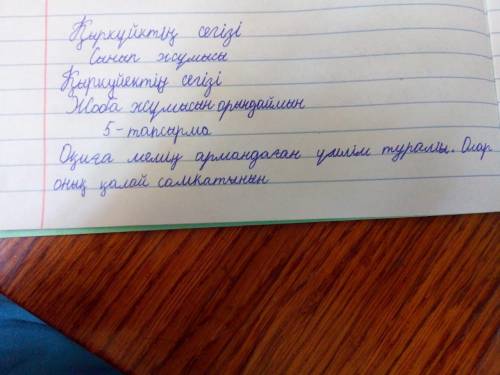 Қыркүйктің сегізі
Сынып жұмысы
Қыркүйектің сегізі
Жоба жұмысын орындаймын
5-тапсырма
Оқиға менің армандаған үйім туралы. Олар
оның қалай салқатынын